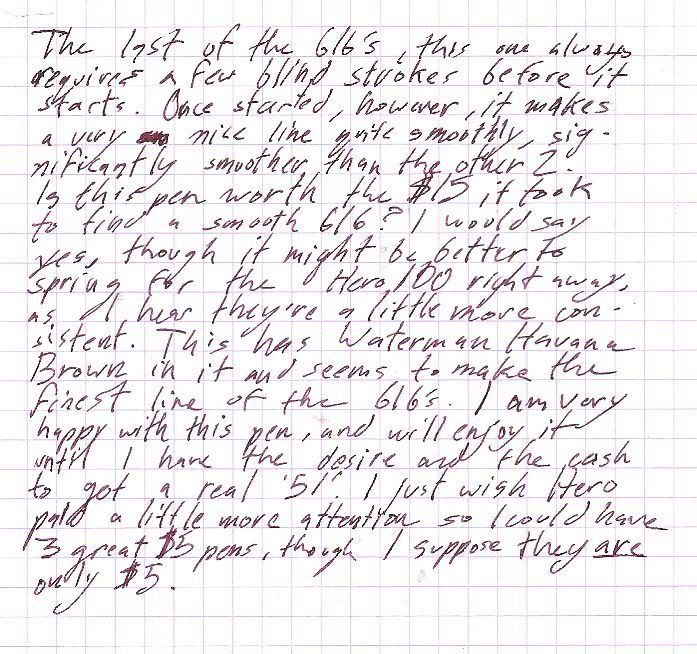 The last of the 616's, this one always
requires a few blind strokes before it
starts. Once started, however, it makes
a very nice line quite smoothly, sig-
nificantly smoother than the other 2.
Is this pen worth the $15 it took
to find a smooth 616? I would say
yes, though it might be better to
spring for the Hero 100 right away,
as I hear they're a little more con-
sistent. This has Waterman Havana
Brown in it and seems to make the
finest line of the 616's. I am very
happy with this pen, and will enjoy it
until I have the desire and the cash
to get a real '51'. I just wish Hero
paid a little more attention so I could have
3 great $5 pens, though I suppose they are
only $5.